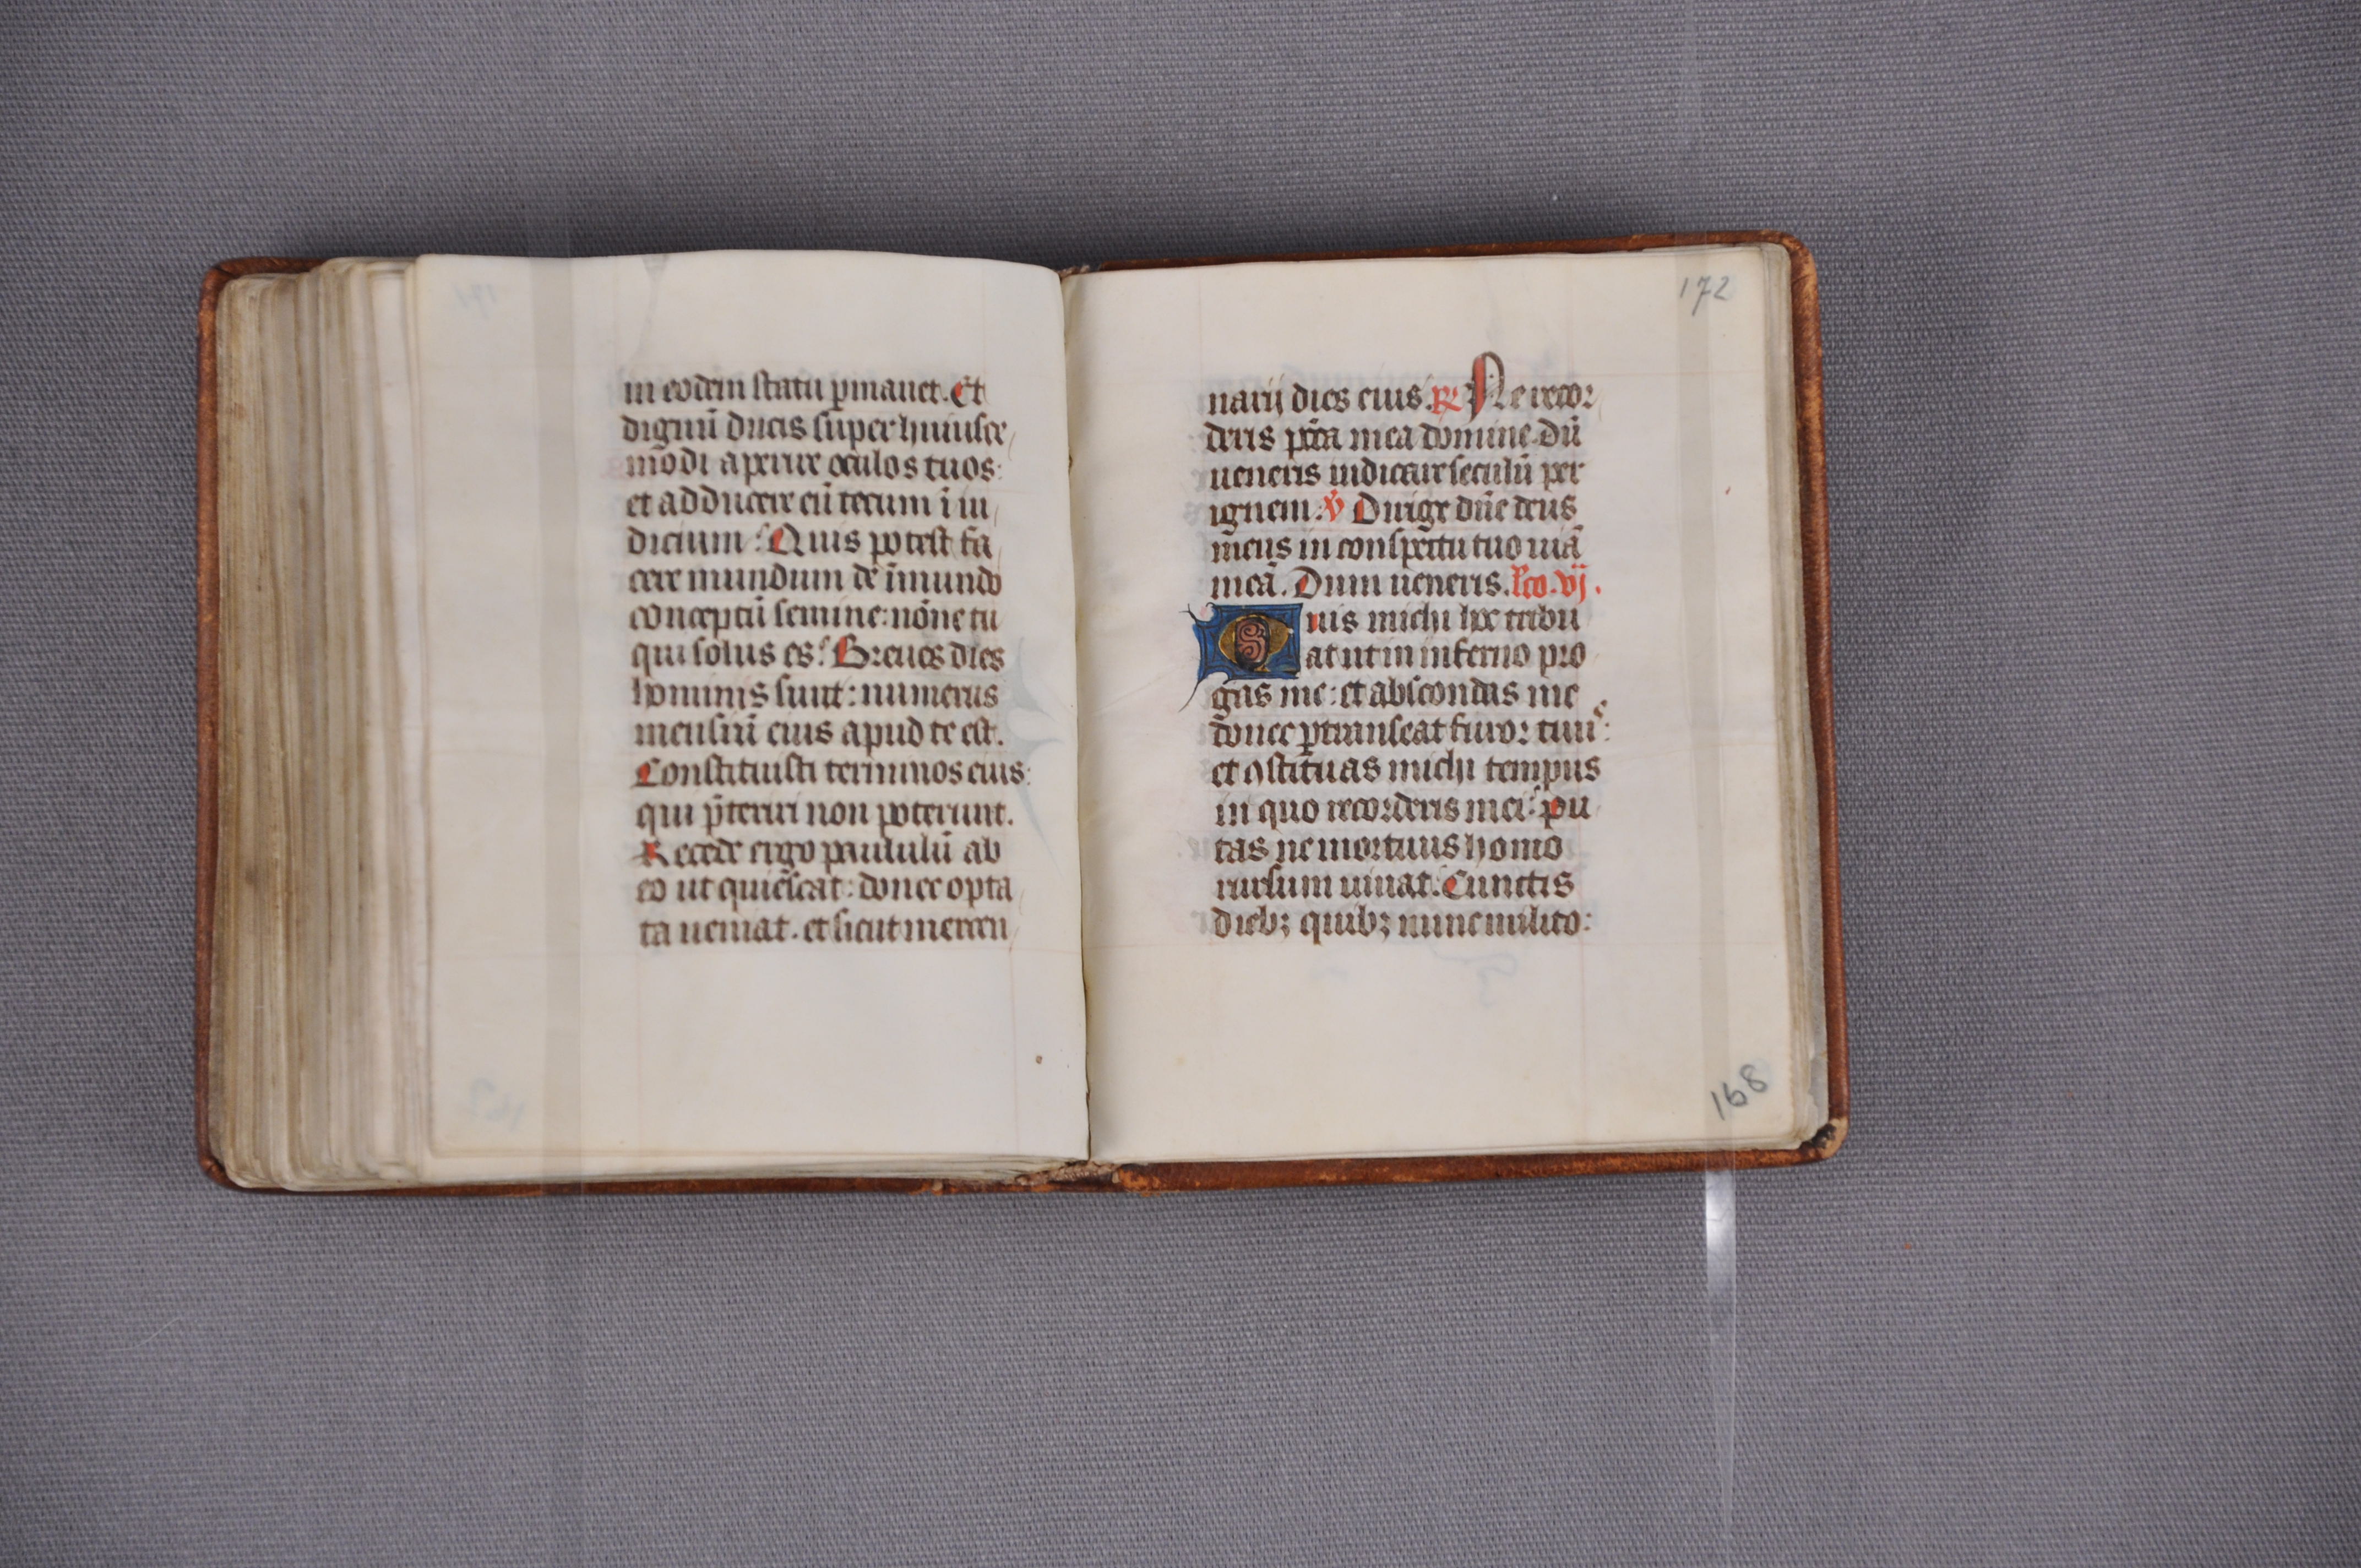 in eodem statu ꝑmanet. Et
dignū ducis super huiusce
modi aperire oculos tuos:
et adducere eū tecum ī iu
dicium: Quis potest fa
cere mundum de īmundo
conceptū semine: nōne tu
qui solus es: Breues dies
hominis sunt: numerus
mensiū eius apud te est.
Constituisti terminos eius:
qui p̄teriri non poterunt.
Recede ergo paululū ab
eo ut quiescat: donec opta
ta ueniat. et sicut mercen
172
narij dies eius. R̷ Ne recor
deris pctā mea domine. Dū
ueneris iudicare seculū per
ignem. v̷ Dirige dn̄e deus
meus in conspectu tuo uiā
meā. Dum ueneris. Lco. vij.
Quis michi hoc tribu
at ut in inferno pro
gas me: et abscondas me
donec ꝑtranseat furor tuus:
et ꝯstituas michi tempus
in quo recorderis mei: Pu
tas ne mortuus homo
rursum uiuat: Cunctis
diebꝫ quibꝫ nunc milito:
168